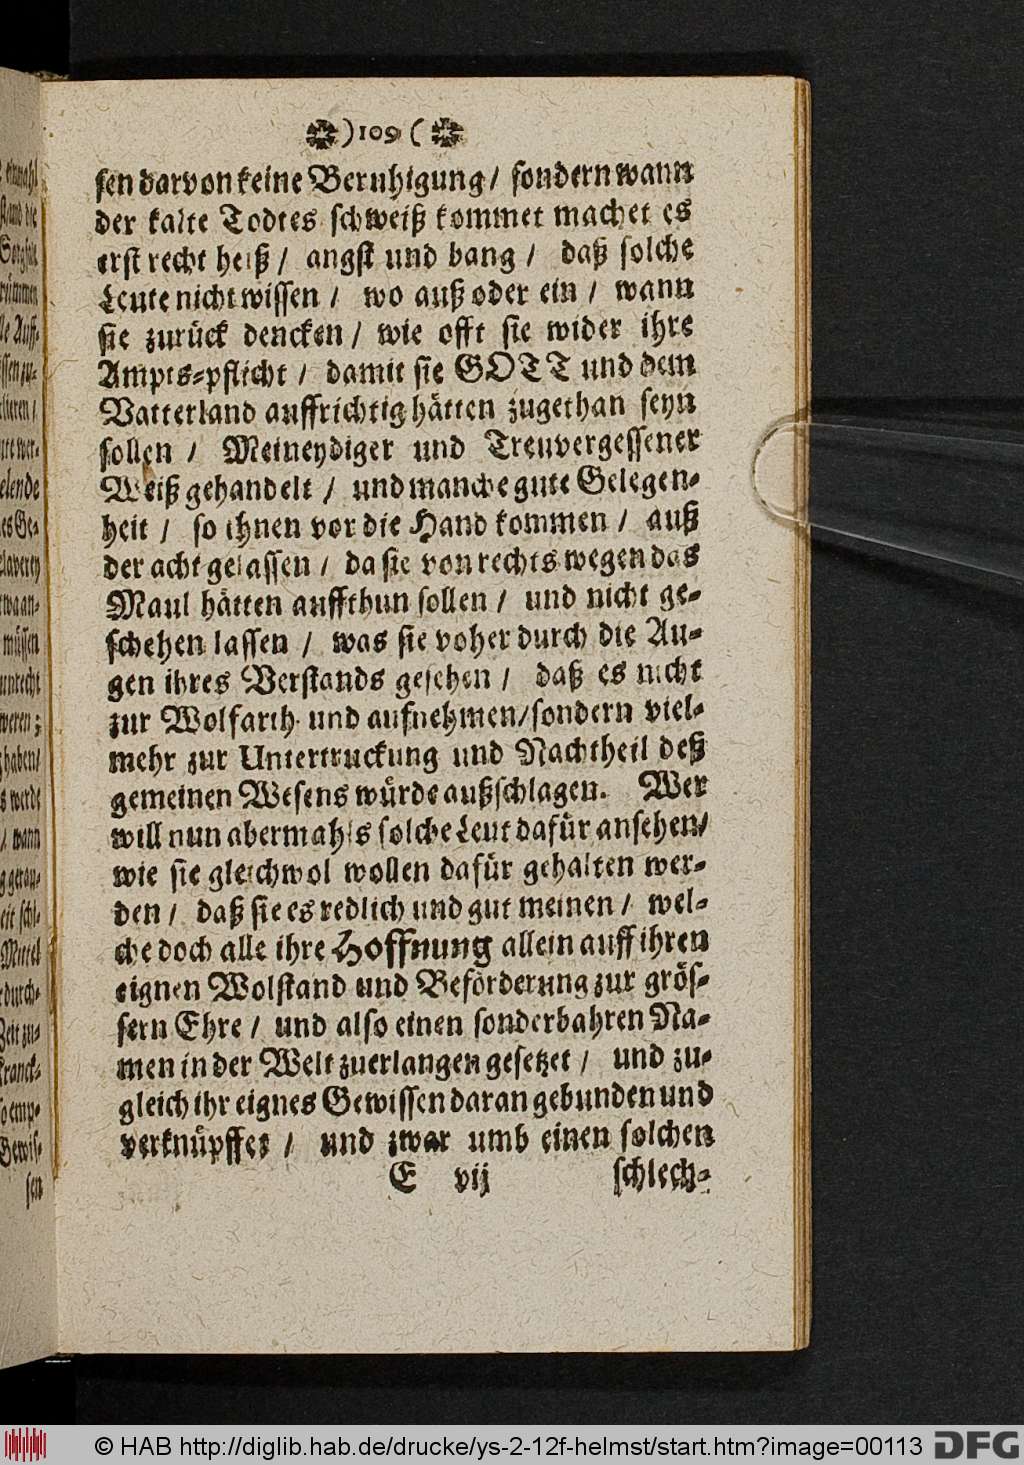 )109(
sen darvon keine Beruhigung/ sondern wann
der kalte Todtes schweiß kommet machet es
erst recht heiß / angst und bang / daß solche
Leute nicht wissen / wo auß oder ein / wann
sie zurück dencken / wie offt sie wider ihre
Ampts-pflicht / damit sie GOTT und dem
Vatterland auffrichtig hätten zugethan seyn
sollen / Meineydiger und Treuvergessener
Weiß gehandelt / und manche gute Gelegen-
heit / so ihnen vor die Hand kommen / auß
der acht gelassen / da sie von rechts wegen das
Maul hätten auffthun sollen / und nicht ge-
schehen lassen / was sie voher durch die Au-
gen ihres Verstands gesehen / daß es nicht
zur Wolfarth und aufnehmen/sondern viel-
mehr zur Untertruckung und Nachtheil deß
gemeinen Wesens würde außschlagen. Wer
will nun abermahls solche Leut dafür ansehen/
wie sie gleichwol wollen dafür gehalten wer-
den / daß sie es redlich und gut meinen / wel-
che doch alle ihre Hoffnung allein auff ihren
eignen Wolstand und Beförderung zur grös-
sern Ehre / und also einen sonderbahren Na-
men in der Welt zuerlangen gesetzet / und zu-
gleich ihr eignes Gewissen daran gebunden und
verknüpffet / und zwar umb einen solchen
E vij schlech-
© HAB http://diglib.hab.de/drucke/ys-2-12f-helmst/start.htm?image=00113 DFG